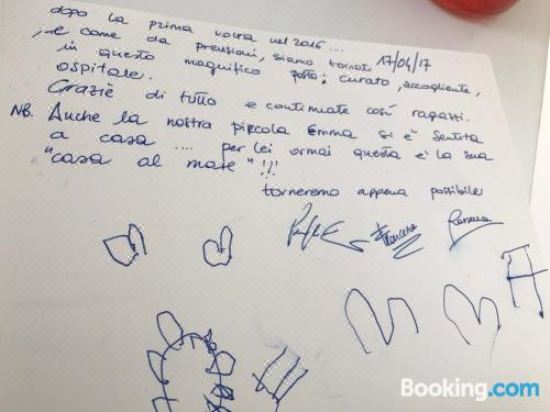 dopo la prima volta nel 2016 ...
17/04/17
... e come da previsioni, siamo tornati
in questo magnifico posto: curato, accogliente,
ospitale.
Grazie di tutto e continuate così ragazzi.
NB. Anche la nostra piccola Emma si è sentita
a casa .... per lei ormai questa è la sua
"casa al mare"!!!
torneremo appena possibile
Francesca
Booking.com